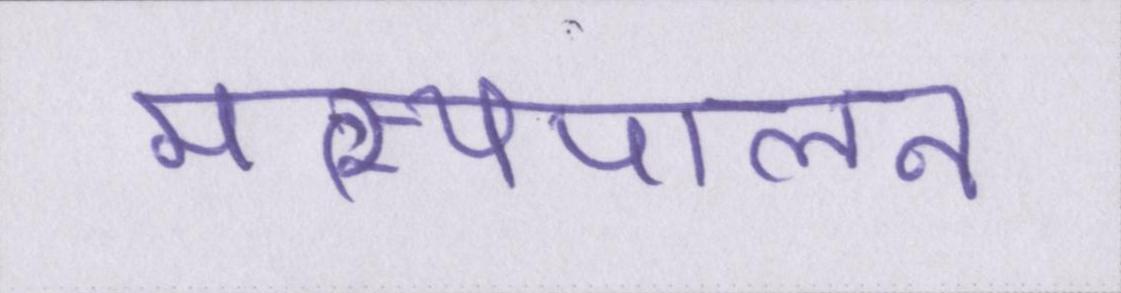 मत्स्यपालन